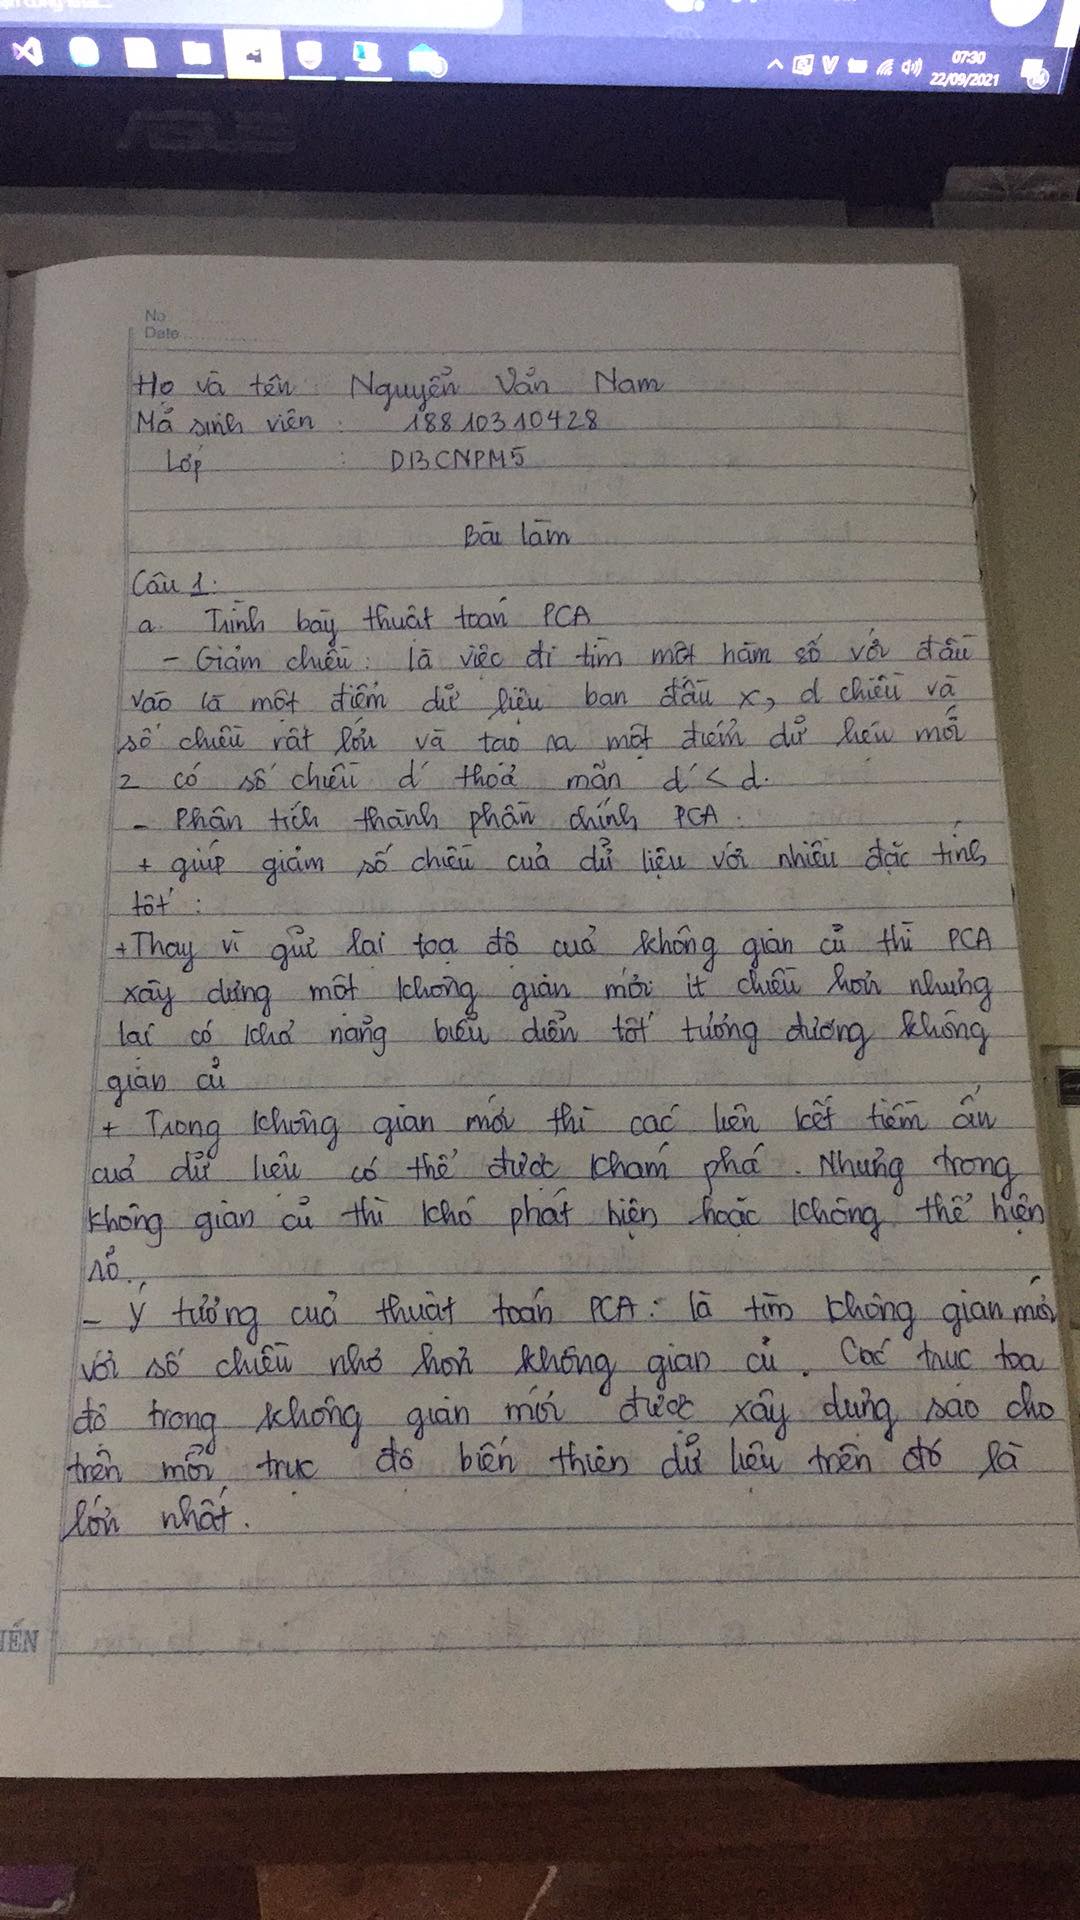 07:30
22/09/2021
ASUS
No
Date
Họ và tên : Nguyễn Văn Nam
Mã sinh viên : 18810310428
Lớp : D13CNPM5
Bài làm
Câu 1:
a. Trình bày thuật toán PCA
- Giảm chiều : là việc đi tìm một hàm số với đầu
vào là một điểm dữ liệu ban đầu x, d chiều và
số chiều rất lớn và tạo ra một điểm dữ liệu mới
z có số chiều d' thoả mãn d' < d.
- Phân tích thành phần chính PCA :
+ giúp giảm số chiều của dữ liệu với nhiều đặc tính
tốt :
+ Thay vì giữ lại toạ độ của không gian cũ thì PCA
xây dựng một không gian mới ít chiều hơn nhưng
lại có khả năng biểu diễn tốt tương đương không
gian cũ
+ Trong không gian mới thì các liên kết tiềm ẩn
của dữ liệu có thể được khám phá . Nhưng trong
không gian cũ thì khó phát hiện hoặc không thể hiện
rõ.
- Ý tưởng của thuật toán PCA : là tìm không gian mới
với số chiều nhỏ hơn không gian cũ . Các trục toạ
độ trong không gian mới được xây dựng sao cho
trên mỗi trục độ biến thiên dữ liệu trên đó là
lớn nhất .